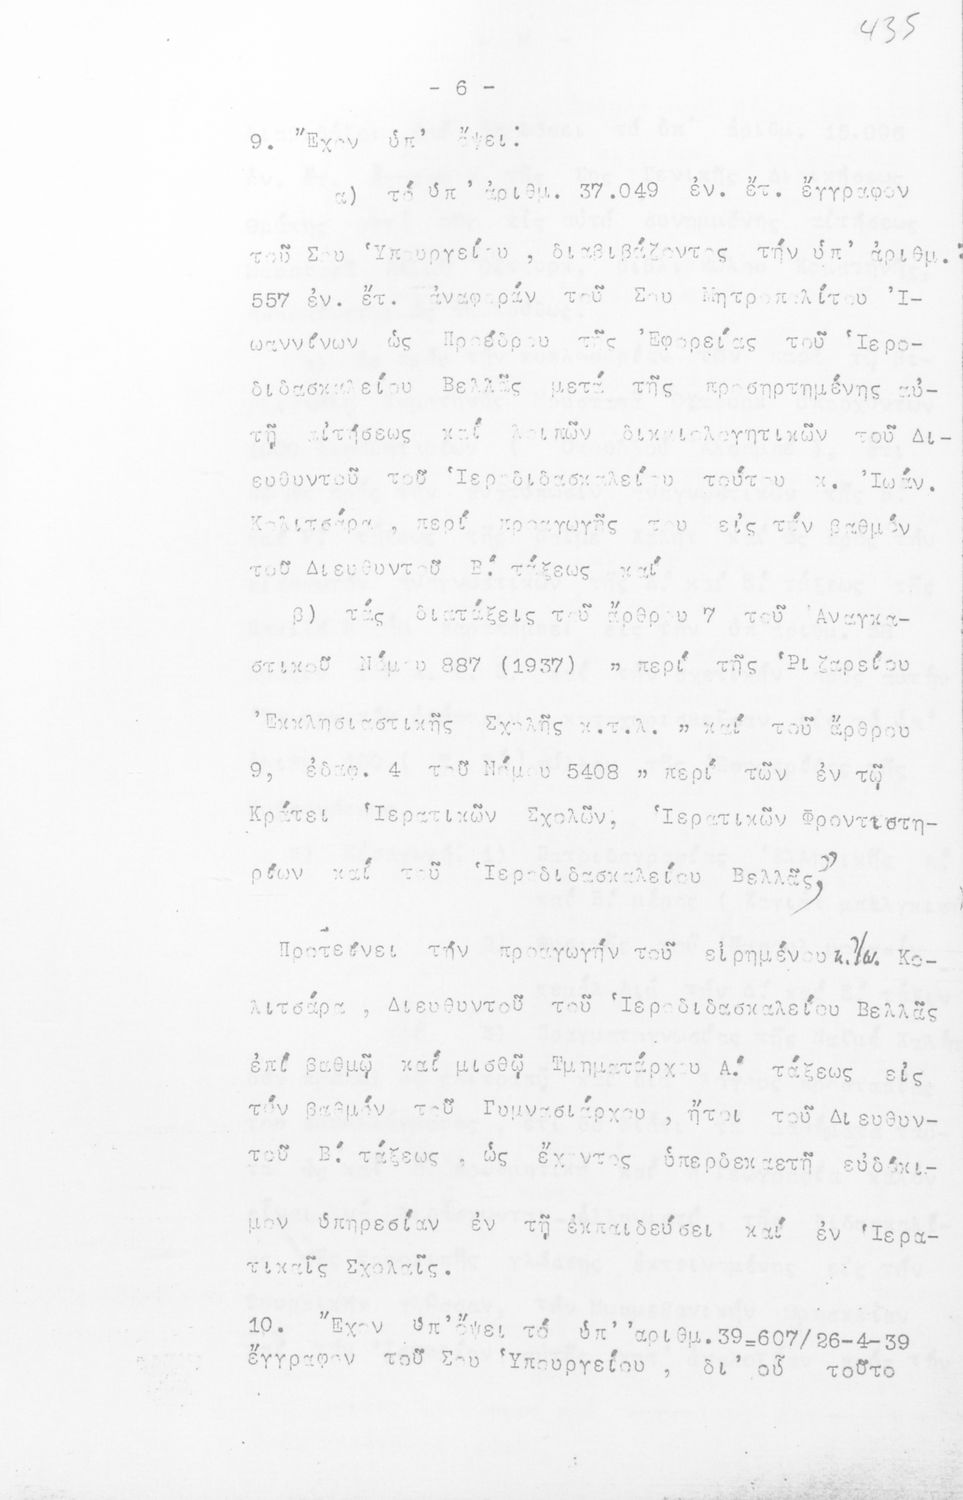 435
- 6 -
9. Ἔχον ὑπ' ὄψει:
α) τό ὑπ' ἀριθμ. 37.049 ἐν. ἔτ. ἔγγραφον
τοῦ Σου Ὑπουργείου , διαβιβάζοντος τήν ὑπ' ἀριθμ.
557 ἐν. ἔτ. ἀναφοράν τοῦ Σου Μητροπολίτου Ἰ-
ωαννίνων ὡς Προέδρου τῆς Ἐφορείας τοῦ Ἱερο-
διδασκαλείου Βελλᾶς μετά τῆς προσηρτημένης αὐ-
τῇ αἰτήσεως καί λοιπῶν δικαιολογητικῶν τοῦ Δι-
ευθυντοῦ τοῦ Ἱεροδιδασκαλείου τούτου κ. Ἰωάν.
Κολιτσάρα , περί προαγωγῆς του εἰς τόν βαθμόν
τοῦ Διευθυντοῦ Β΄. τάξεως καί
β) τάς διατάξεις τοῦ ἄρθρου 7 τοῦ Ἀναγκα-
στικοῦ Νόμου 887 (1937) " περί τῆς Ῥιζαρείου
Ἐκκλησιαστικῆς Σχολῆς κ.τ.λ. " καί τοῦ ἄρθρου
9, ἐδαφ. 4 τοῦ Νόμου 5408 " περί τῶν ἐν τῷ
Κράτει Ἱερατικῶν Σχολῶν, Ἱερατικῶν Φροντιστη-
ρίων καί τοῦ Ἱεροδιδασκαλείου Βελλᾶς",
Προτείνει τήν προαγωγήν τοῦ εἰρημένου κ. Ἰω. Κο-
λιτσάρα , Διευθυντοῦ τοῦ Ἱεροδιδασκαλείου Βελλᾶς
ἐπί βαθμῷ καί μισθῷ Τμηματάρχου Α΄. τάξεως εἰς
τόν βαθμόν τοῦ Γυμνασιάρχου , ἤτοι τοῦ Διευθυν-
τοῦ Β΄. τάξεως , ὡς ἔχοντος ὑπερδεκαετῆ εὐδόκι-
μον ὑπηρεσίαν ἐν τῇ ἐκπαιδεύσει καί ἐν Ἱερα-
τικαῖς Σχολαῖς.
10. Ἔχον ὑπ' ὄψει τό ὑπ' ἀριθμ. 39=607/26-4-39
ἔγγραφον τοῦ Σου Ὑπουργείου , δι' οὗ τοῦτο